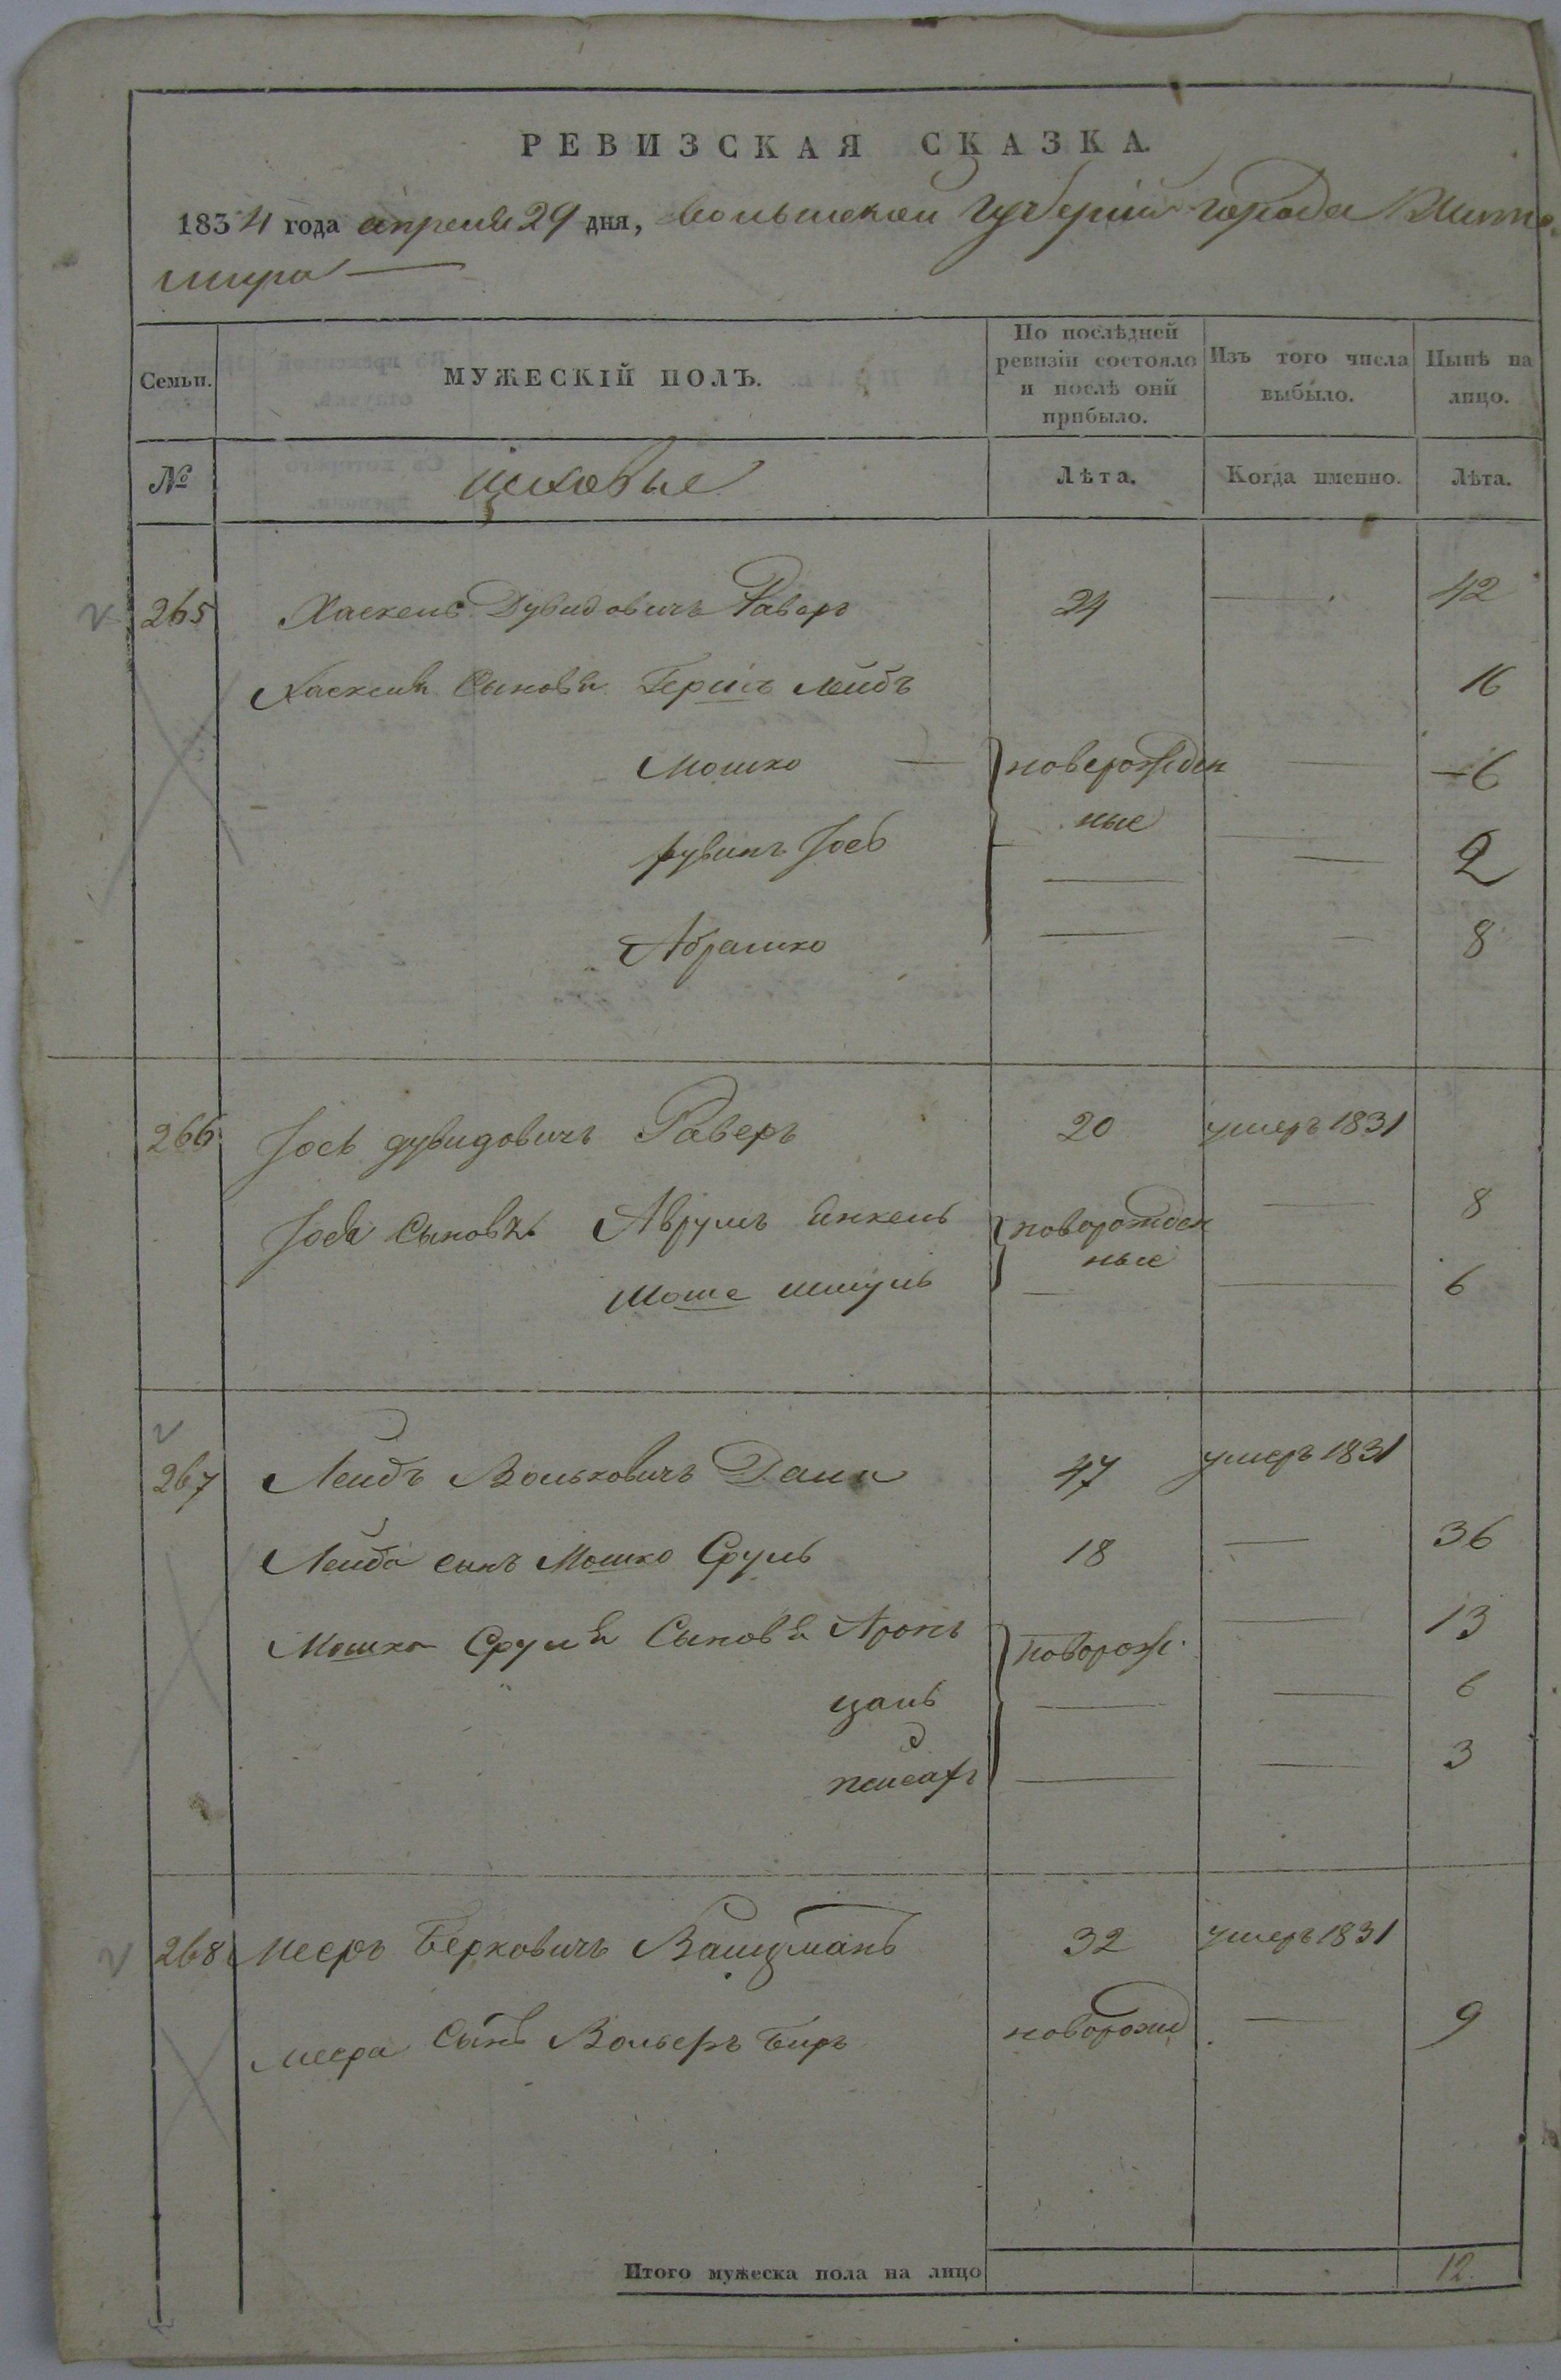 РЕВИЗСКАЯ СКАЗКА.
1834 года апреля 29 дня, волынской губернии города Жито
мира
Семьи.
МУЖЕСКІЙ ПОЛЪ.
По послѣдней ревизіи состояло и послѣ оній прибыло.
Изъ того числа выбыло.
Нынѣ на лицо.
№
цеховые
Лѣта.
Когда именно.
Лѣта.
265 Хаскель Дувидовичъ Раверъ 24 — 42
Хаскеля Сыновя Гершъ Лейбъ 16
Мошко — новерожден — 6
ные
рувинъ Іось — — 2
Абрашко — — 8
266 Іось дувидовичъ Раверъ 20 умеръ 1831
Іося Сыновя Аврумъ Янкель новорожден — 8
ные
Моше шмуль — — 6
267 Лейбъ Вольковичъ 47 умеръ 1831
Лейба сынъ Мошко Сруль 18 — 36
Мошка Сруля Сыновя Аронъ новорож. — 13
— — 6
пейсахъ — — 3
268 Мееръ Берковичъ Вайцманъ 32 умеръ 1831
меера Сынъ Вольфъ Беръ новорожд — 9
Итого мужеска пола на лицо 12.